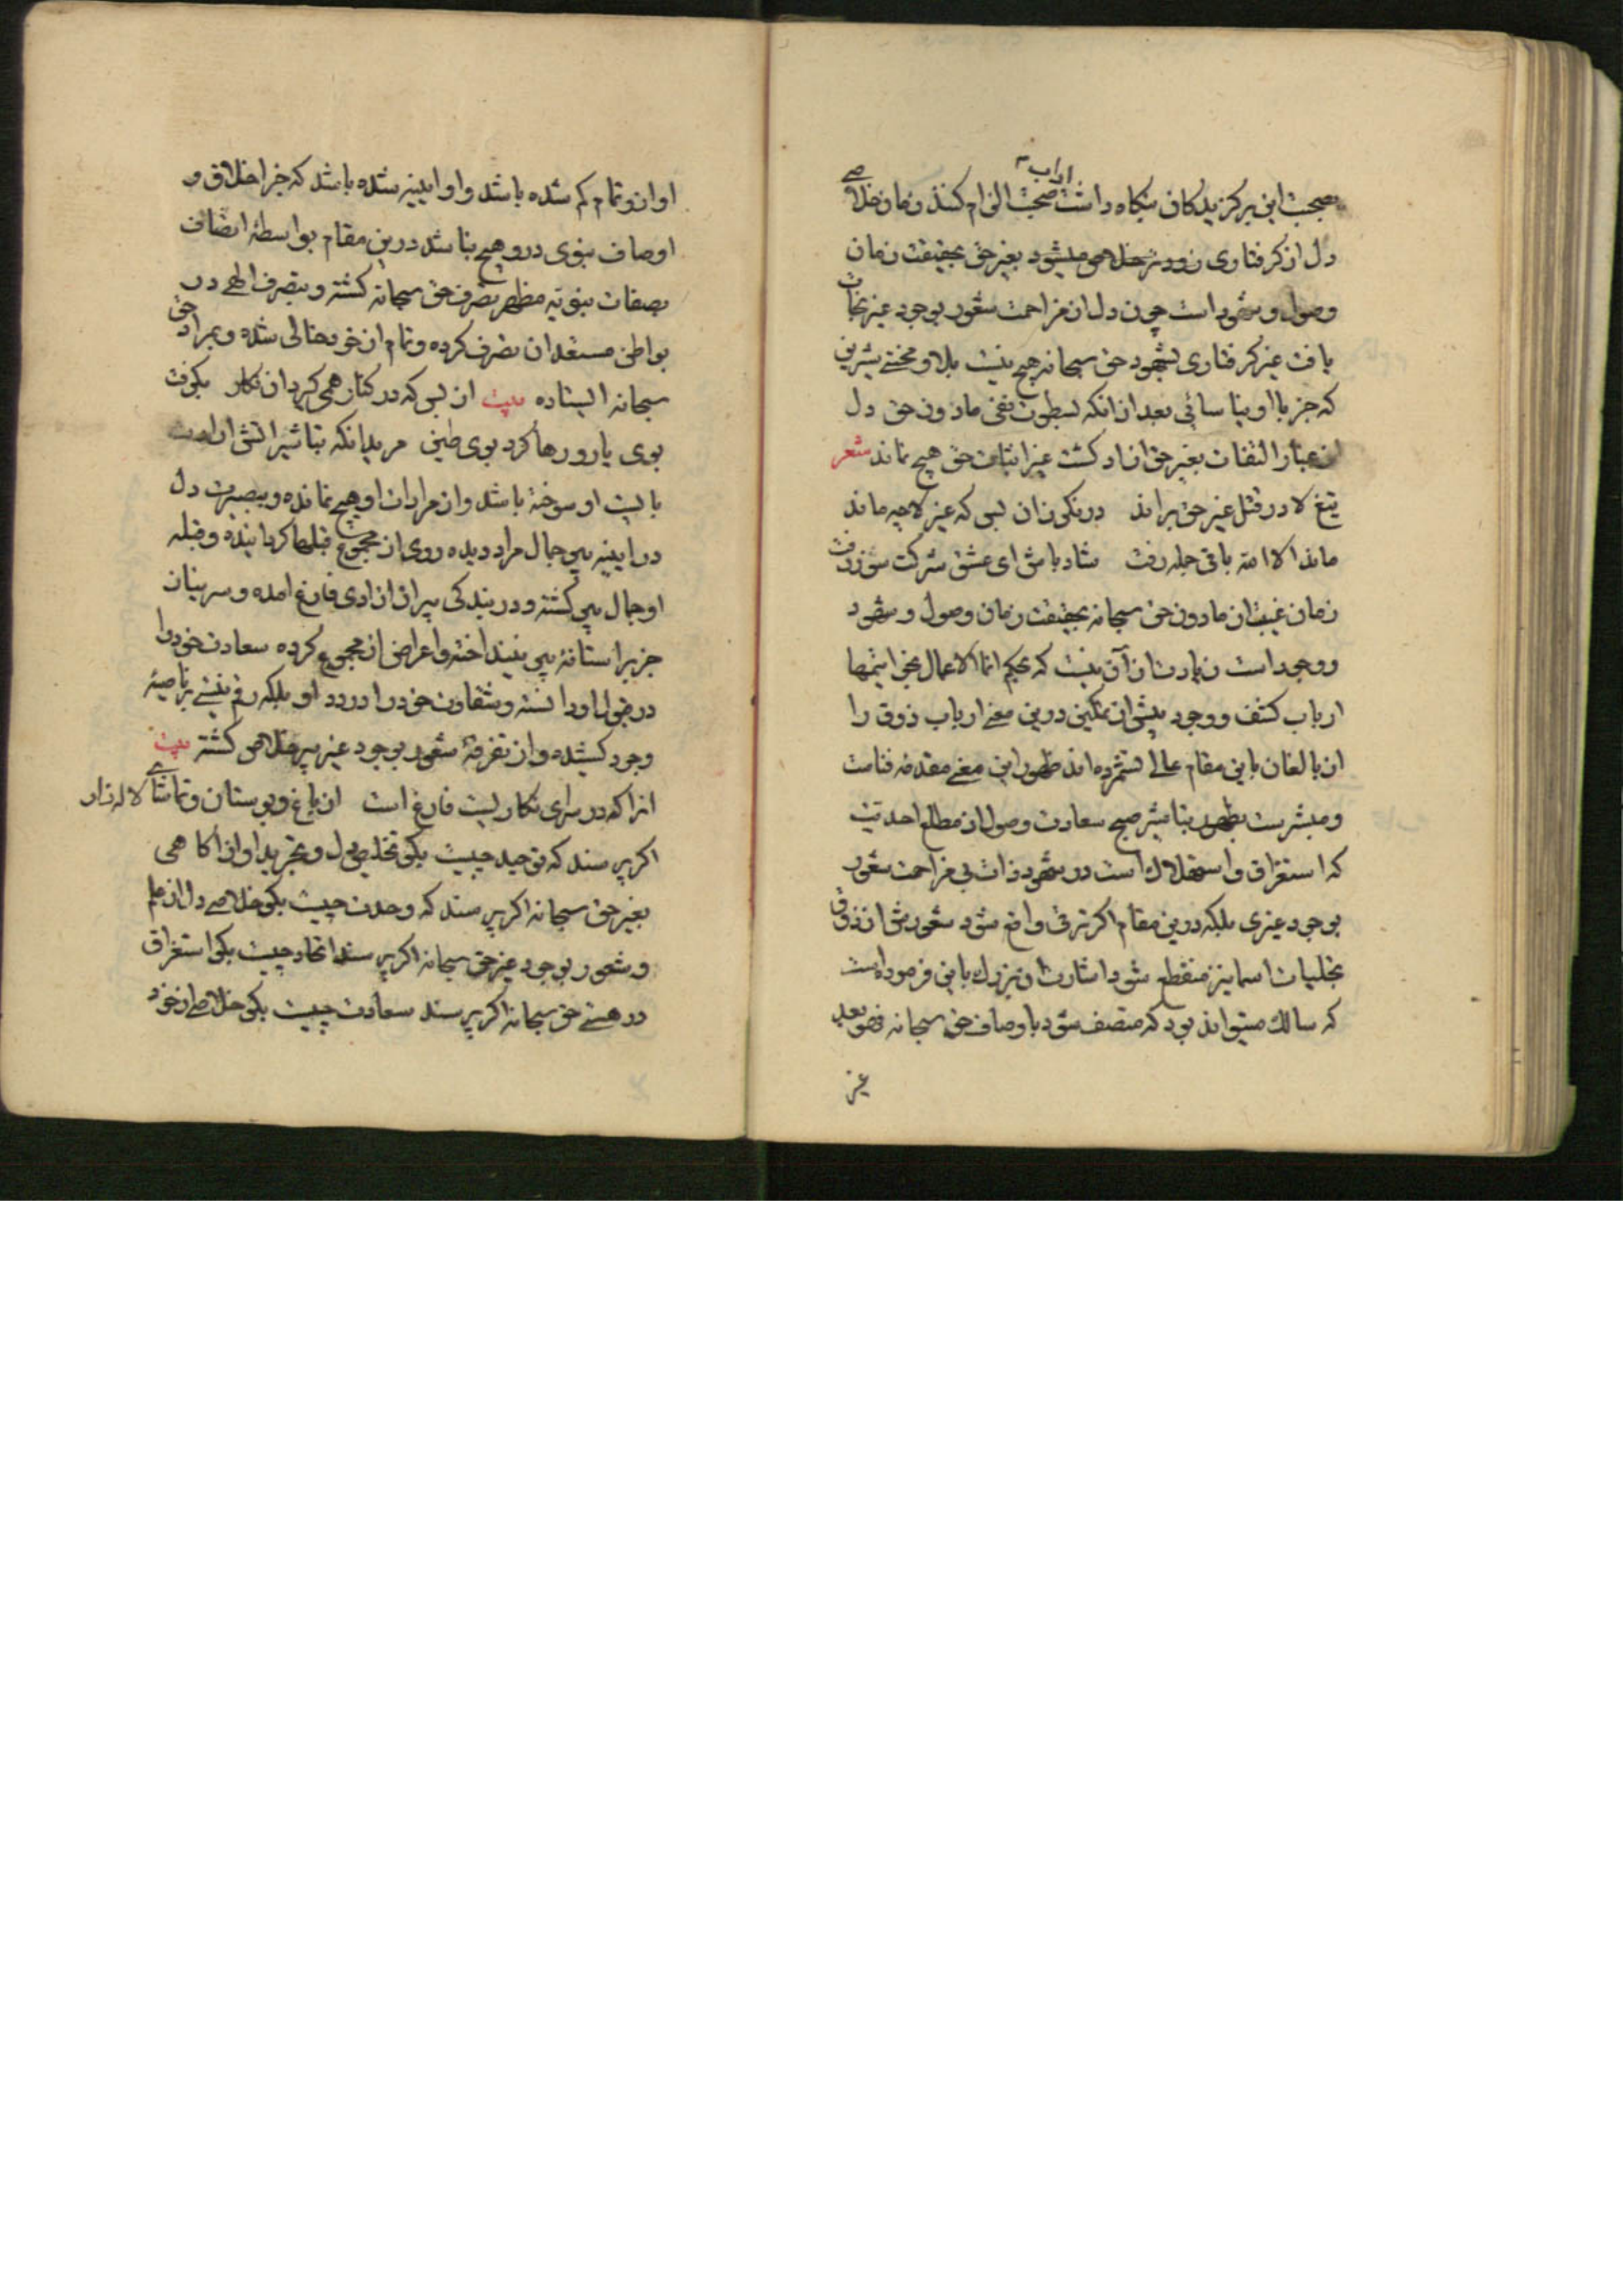 صحبت این برکزیدکان نکاه داشت اداب صحبت الزام کنند زمان خلاصی
دل از کرفتاری زودتر خلاص میشود بغیر حق بحقیقت زمان
وصول و شهود است چون دل از مزاحمت شعور بوجود غیر نجات
یافت غیر کرفتاری بشهود حق سبحانه هیچ نیست بلا و محنتی شیرین
که جز با او نیاسائی بعد از انکه بسطوت نفی مادون حق دل
از غبار التفات بغیر حق ازاد کشت غیر اثبات حق هیچ نماند شعر
تیغ لا در قتل غیر حق براند در نکر زان پس که غیر لا چه ماند
ماند الا الله باقی جمله رفت شاد باش ای عشق شرکت سوز زفت
زمان غیبت از مادون حق سبحانه بحقیقت زمان وصول و شهود
و وجود است زیادت از آن نیست که بحکم انما الاعمال بخواتیمها
ارباب کشف و وجود پیش از تمکین درین معنی ارباب ذوق را
از بالغان باین مقام عالی نشمرده اند ظهور این معنی مقدمه فنا است
و مبشر است بظهور تباشیر صبح سعادت وصول از مطلع احدیت
که استغراق و استهلاک است در شهود ذات بی مزاحمت شعور
بوجود غیری بلکه درین مقام اکر ترقی واقع شود شعورش از ذوق
تجلیات اسما نیز منقطع شود اشارت ان بزرک باین فرموداست
که سالک میتواند بود که متصف شود باوصاف حق سبحانه فهو بعد
غیر
او از و تمام کم شده باشد و او ایینه شده باشد که جز اخلاق و
اوصاف نبوی درو هیچ نباشد درین مقام بواسطهٔ اتصاف
بصفات نبویه مظهر تصرف حق سبحانه کشته و بتصرف الهی در
بواطن مستعدان تصرف کرده و تمام از خود خالی شده و بمراد حق
سبحانه ایستاده بیت از بس که در کنار همی کیرد ان نکار بکرفت
بوی یار و رها کرد بوی طین مرید انکه بتاثیر اتش ارادت
بایست او سوخته باشد و از مرادات او هیچ نمانده و ببصیرت دل
در ایینه پیر جمال مراد دیده روی از مجموع قبلها کردانیده و قبله
او جمال پیر کشته و در بندکی پیر از ازادی فارغ امده و سر نیاز
جز بر استانهٔ پیر نینداخته و اعراض از مجموع کرده سعادت خود را
در قبول او دانسته و شقاوت خود را در رد او بلکه رقم نیستی بر ناصیهٔ
وجود کشیده و از تفرقهٔ شعور بوجود غیر پیر خلاص کشته بیت
انرا که در سرای نکاریست فارغ است از باغ و بوستان و تماشای لاله زار
اکر پرسند که توحید چیست بکو تخلیص دل و تجرید او از اکاهی
بغیر حق سبحانه اکر پرسند که وحدت چیست بکو خلاصی دل از علم
و شعور بوجود غیر حق سبحانه اکر پرسند اتحاد چیست بکو استغراق
در هستی حق سبحانه اکر پرسند سعادت چیست بکو خلاصی از خود